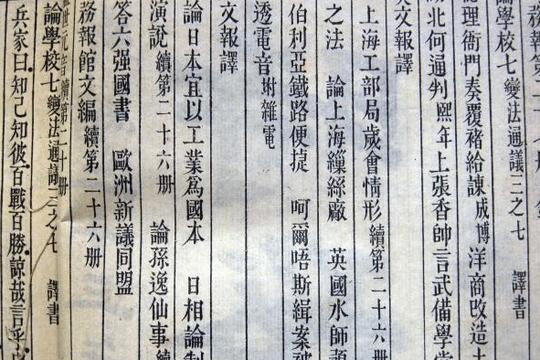 論學校七變法通議三之七 譯書
理衙門奏覆褚給諫成博 洋商改造
北何通判熙年上張香帥言武備學堂
文報譯
上海工部局歲會情形續第二十六册
之法 論上海繅絲廠 英國水師
伯利亞鐵路便捷 呵爾唔斯緝案被
透電音附雜電
文報譯
論日本宜以工業爲國本 日相論制
演說續第二十六册 論孫逸仙事續
答六强國書 歐洲新議同盟
務報館文編續第二十六册
世元音續第二十册
論學校七變法通議三之七 譯書
兵家曰知己知彼百戰百勝諒哉言乎